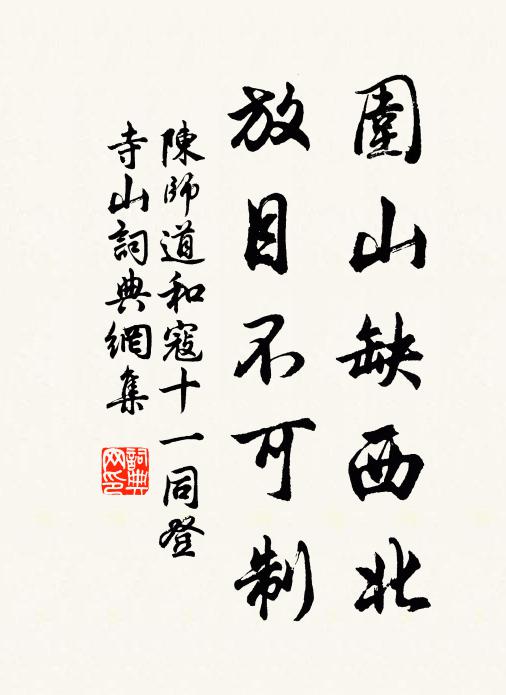 圍山缺西北
放目不可制
陳師道和寇十一同登
寺山詞典網集
詞典
网印